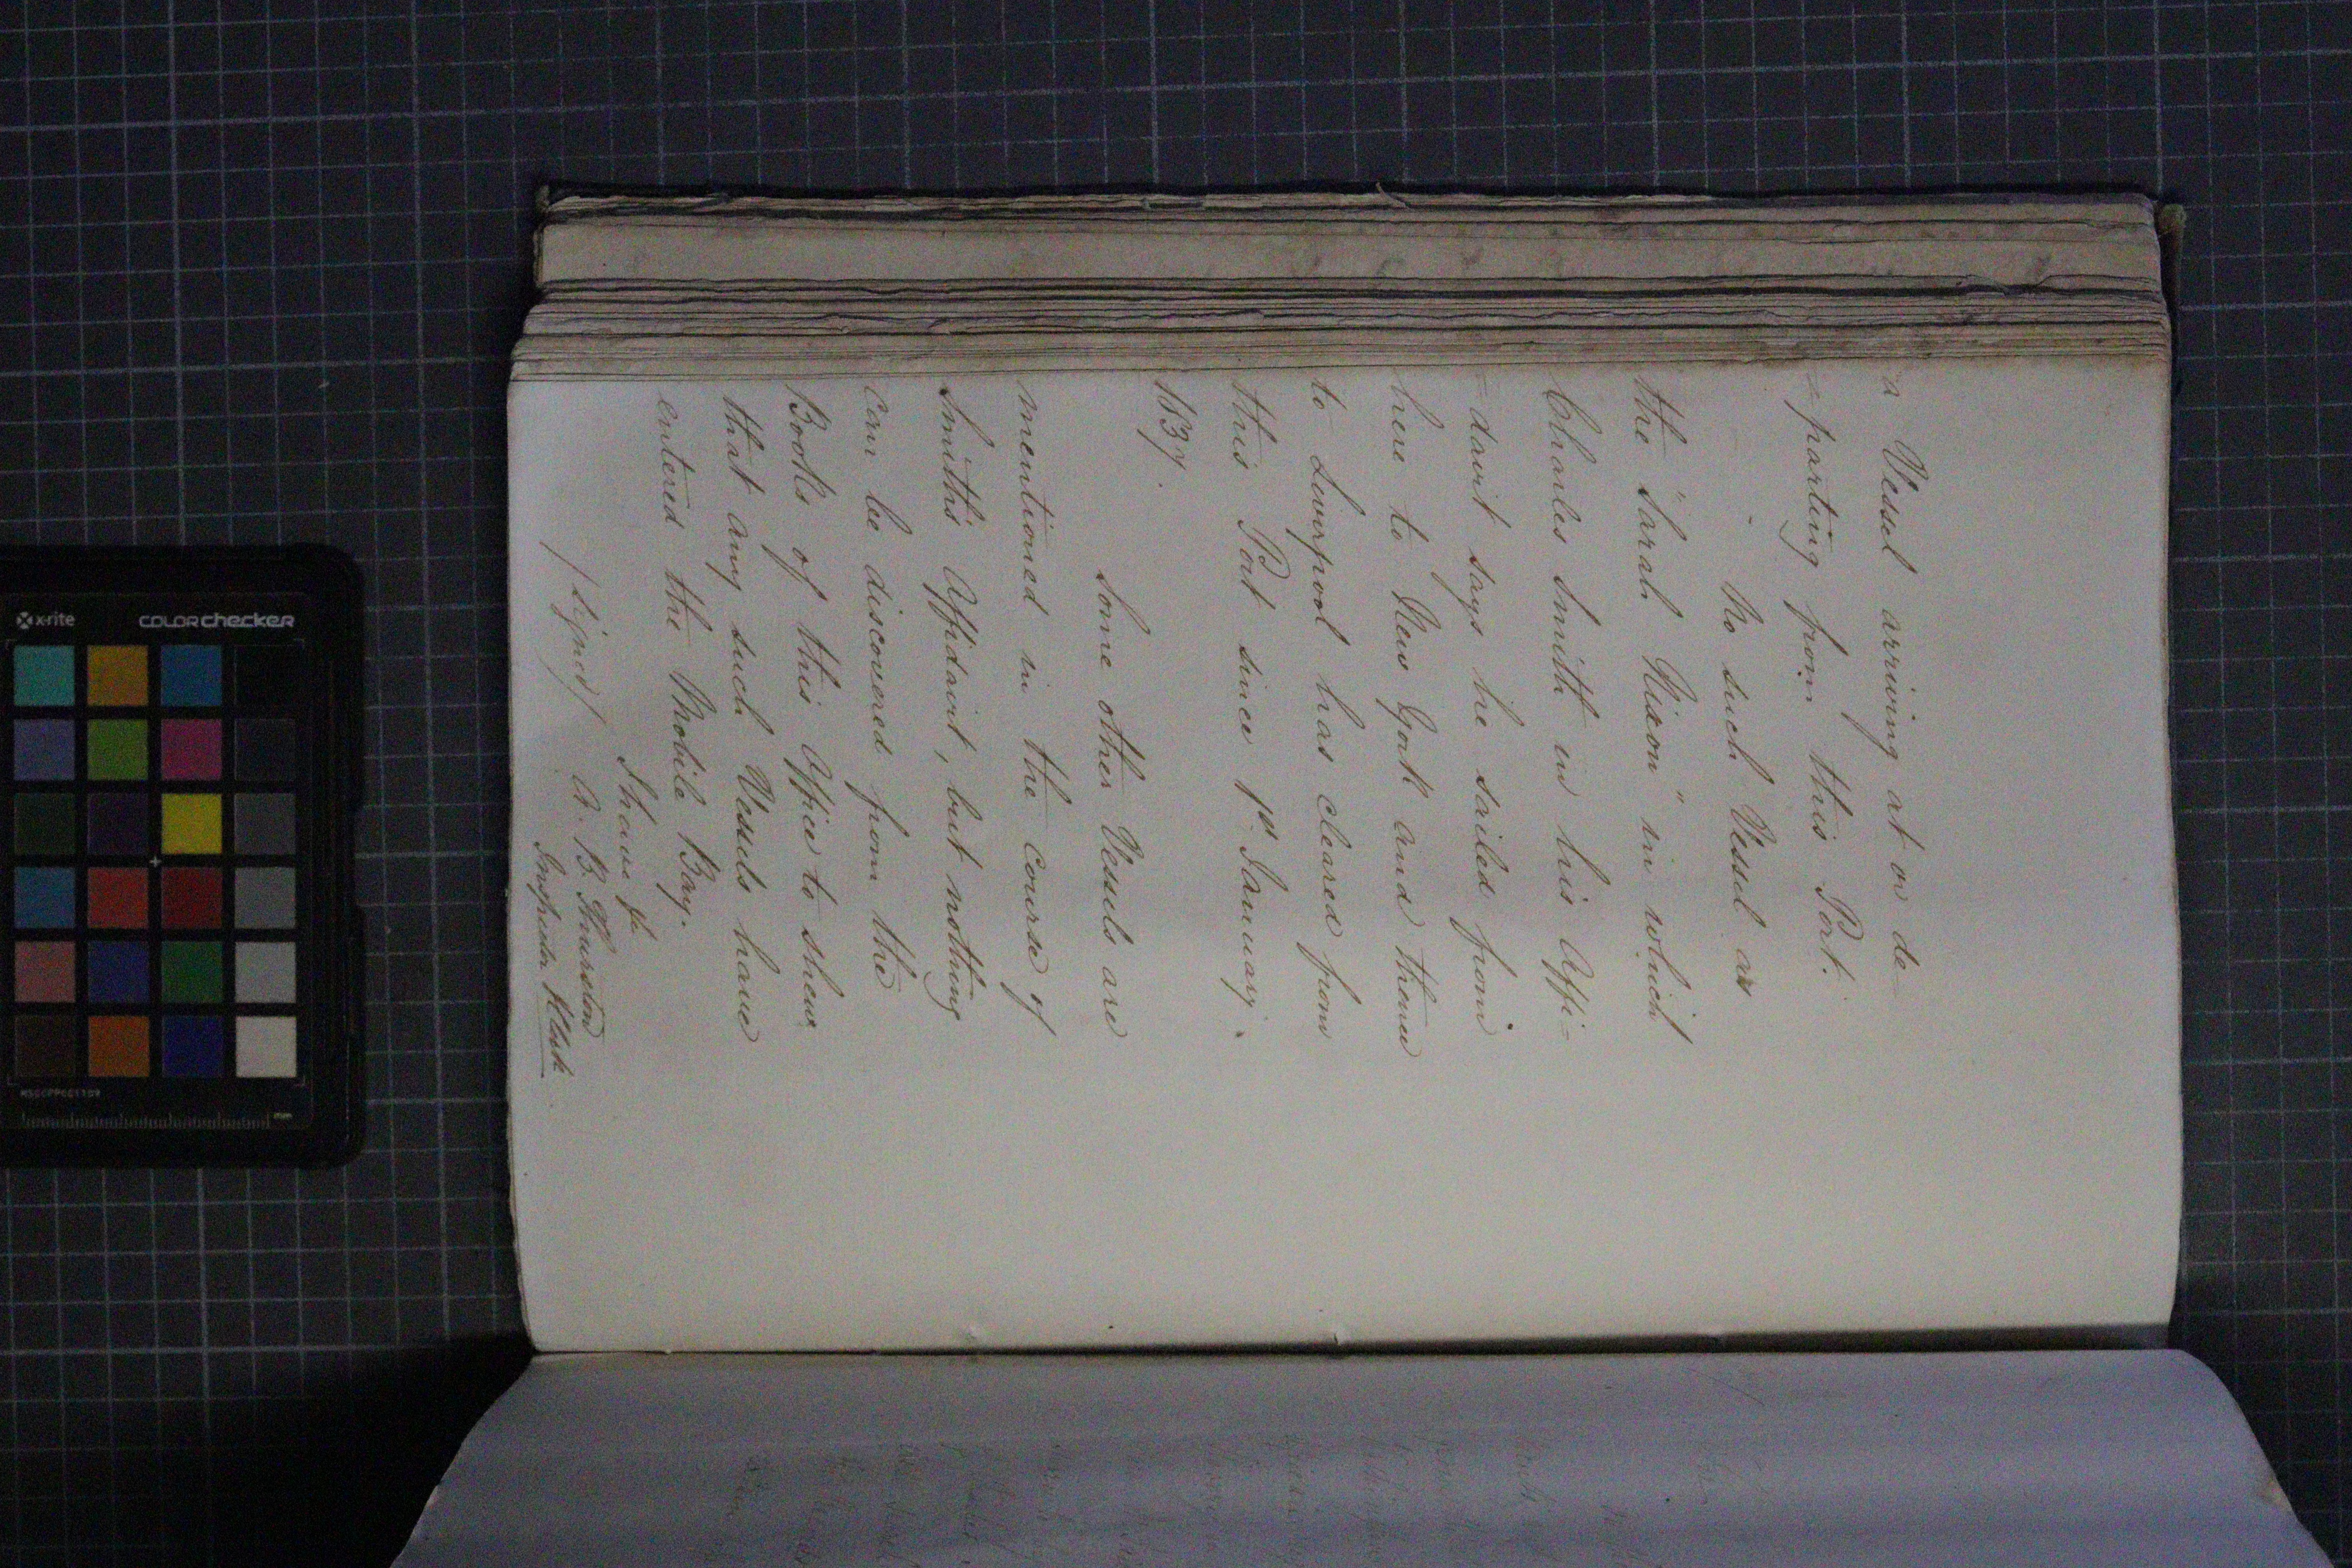 a Vessel arriving at or de-
=parting from this Port.
No such Vessel as
the "Sarah Nixon" in which
Charles Smith in his Affi-
=davit says he sailed from
here to New York and thence
to Liverpool has cleared from
this Port since 1st January.
1837.
Some other Vessels are
mentioned in the course of
Smith's Affidavit, but nothing
can be discovered from the
Books of this Office to shew
that any such Vessels have
entered the Mobile Bay.
I have &c
/signed/ A. B. Thurston
Inspector Clerk
x-rite colorchecker
mm